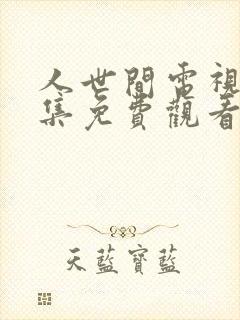 人世間電視
集免費觀看
天藍寶藍